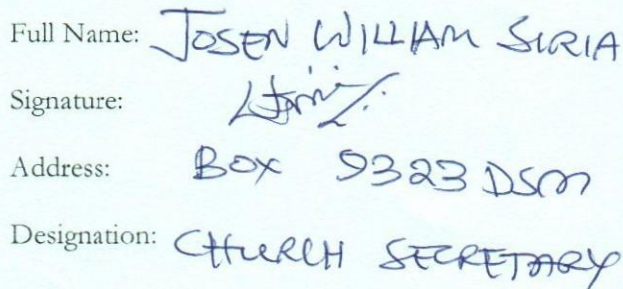 Full Name: JOSEN WILLIAM SIRIA
Signature:
Address: BOX 9323 DSM
Designation: CHURCH SECRETARY